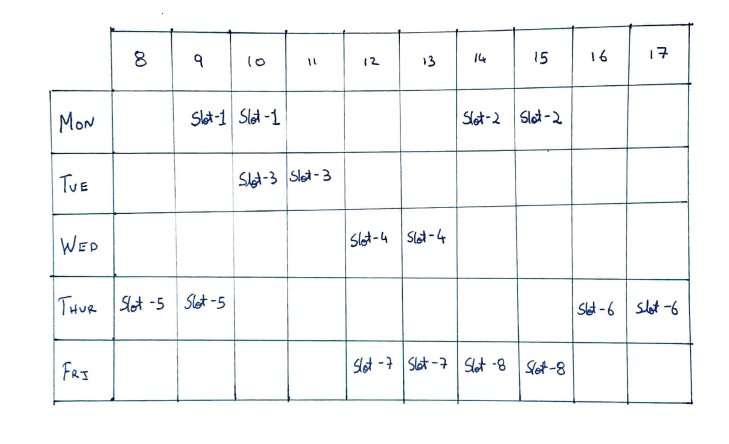 8 9 10 11 12 13 14 15 16 17
MON Slot-1 Slot-1 Slot-2 Slot-2
TUE Slot-3 Slot-3
WED Slot-4 Slot-4
THUR Slot-5 Slot-5 Slot-6 Slot-6
FRI Slot-7 Slot-7 Slot-8 Slot-8